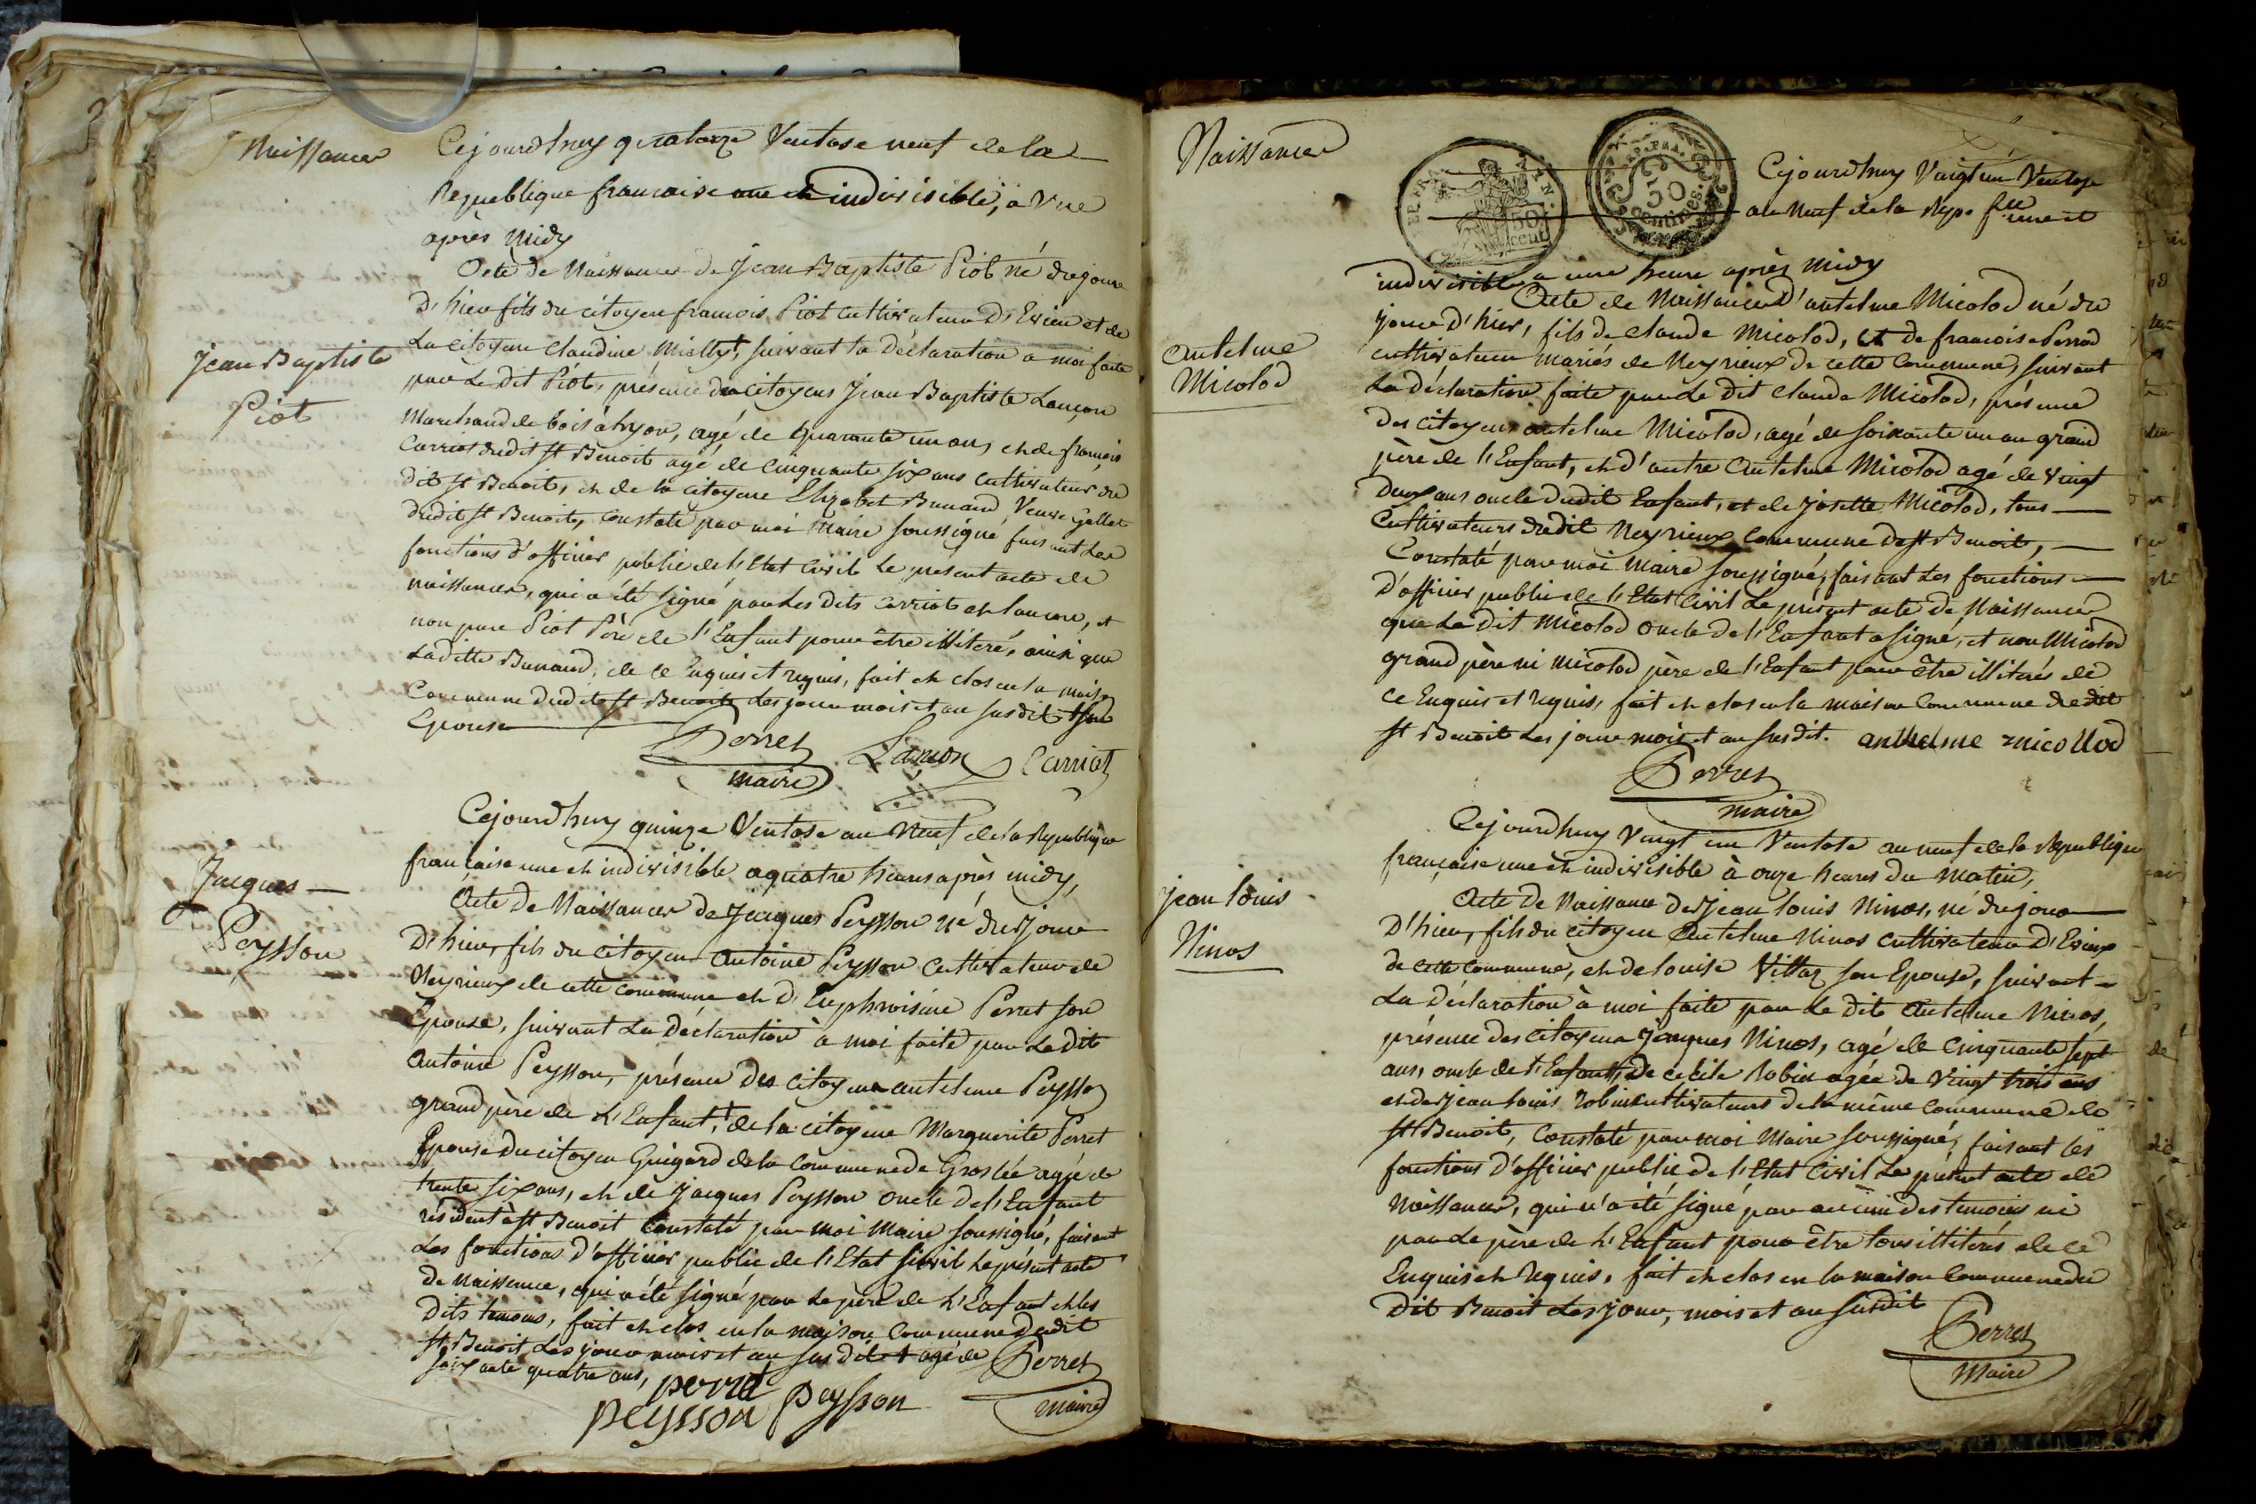 Naissances
Cejourdhuy quatorze Ventose neuf de la
Republique francaise une et indivisible, a Une
après Midy
Acte de Naissance de Jean Baptiste Piot né du jour
D'hier fils du citoyen francois Piot cultivateur D'Evieu et de
La citoyene Claudine Miellet, suivant la déclaration a moi faite
par Le dit Piot, présence des citoyens Jean Baptiste Lançon
Marchand de bois à Lyon, agé de quarante un an, et de françois
Carriot dudit St Benoit agé de cinquante six ans cultivateur du
dit St Benoit, et de la citoyene Elizabet Bunand Veuve Gallet
dudit St Benoit, constaté par moi Maire soussigné faisant Les
fonctions d'officier public de l'Etat Civil Le present acte de
naissance, qui a été signé par Les dits Carriot et Lancon, et
non par Piot Père de l'Enfant pour être illiteré, ainsi que
Laditte Bunand, de ce Enquis et requis, fait et clos en la maison
Commune dudit St Benoit Les jour mois et an susdit + son
Epouse
Jean Baptiste
Piot
Perret
maire
Lancon
Carriot
Cejourdhuy quinze Ventose an Neuf de la Republique
française une et indivisible a quatre heures après midy,
Acte de Naissance de Jacques Peysson né du jour
D'hier, fils du citoyen Antoine Peysson cultivateur de
Neyrieux de cette commune et d'Euphroisine Perret son
Epouse, suivant La déclaration à moi faite par Le dit
Antoine Peysson, présence des citoyens antelme Peysson
grand père de L'Enfant, + de la citoyene Marguerite Perret
Epouse du citoyen Guigard de la Commune de Groslée agée de
trente six ans, et de Jacques Peysson oncle de l'Enfant
résident à St Benoit Constaté par moi Maire soussigné, faisant
Les fonctions d'officier public de l'Etat Civil Le présent acte
De Naissance, qui a été signé par Le père de L'Enfant et les
Dits temoins, fait et clos en la maison Commune dudit
St Benoit Les jour mois et an susdit + agé de
soixante quatre ans,
Jacques
Peysson
Perret
maire
perret
peysson
peysson
Naissances
REP. FRA.
50 cent
REP. FRA.
50
centimes
Cejourdhuy Vingt un Ventose
an Neuf de la Rep. fse une et
indivisible a une heure après Midy
Acte de Naissance d'antelme Micolod né du
jour D'hier, fils de claude Micolod, et de francoise Perrod
cultivateurs mariés de Neyrieux de cette Commune, suivant
La déclaration faite par Le dit claude Micolod, présence
Des citoyens antelme Micolod, agé de soixante un an grand
père de l'Enfant, et d'autre Antelme Micolod agé de vingt
deux ans oncle dudit Enfant, et de Josette Micolod, tous
Cultivateurs dudit Neyrieux Commune de St Benoit,
Constaté par moi Maire soussigné, faisant Les fonctions
D'officier public de l'Etat Civil Le présent acte de Naissance
que Le dit Micolod oncle de l'Enfant a signé, et non Micolod
grand père ni Micolod père de l'Enfant pour être illiterés de
ce Enquis et requis, fait et clos en la maison Commune dudit
St Benoit Les jour mois et an susdit.
Antelme
Micolod
anthelme micollod
Perret
maire
Cejourdhuy Vingt un Ventose an neuf de la Republique
française une et indivisible à onze heures du Matin,
Acte de Naissance de Jean Louis Ninos, né du jour
D'hier, fils du citoyen Antelme Ninos cultivateur D'Evieux
de cette commune, et de Louise Villaz son Epouse, suivant
La Déclaration à moi faite par Le dit Antelme Ninos,
présence des citoyens Jacques Ninos, agé de Cinquante sept
ans, oncle de l'Enfant, De cecile Robin agée de Vingt trois ans
et de Jean Louis Robin cultivateurs de la même Commune de
St Benoit, Constaté par moi Maire soussigné, faisant les
fonctions D'officier public de l'Etat Civil Le présent acte de
Naissance, qui n'a été signé par aucun des temoins ni
par Le père de L'Enfant pour être tous illiterés de ce
Enquis et Requis, fait et clos en la maison Commune du
Dit Benoit Les jour, mois et an susdit
jean Louis
Ninos
Perret
Maire